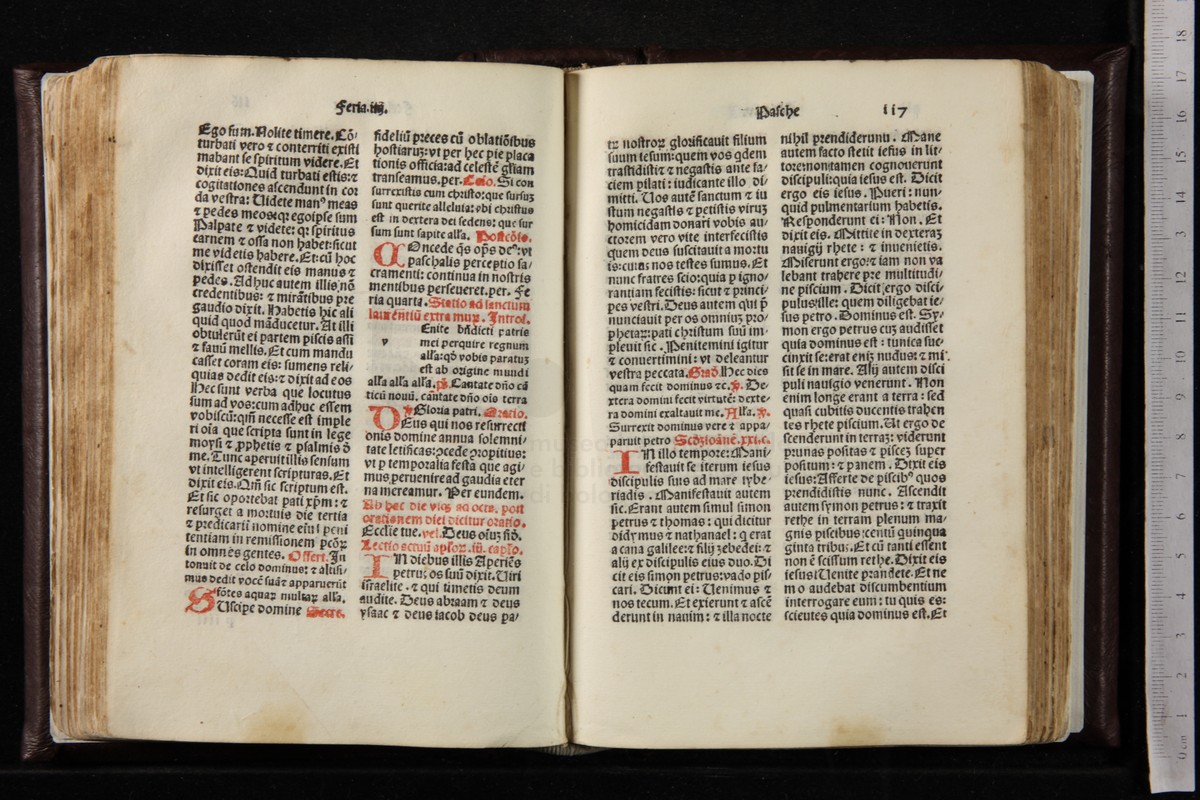 Feria.iiij.
Ego sum. Nolite timere. Cõ-
turbati vero ⁊ conterriti existi
mabant se spiritum videre. Et
dixit eis: Quid turbati estis: ⁊
cogitationes ascendunt in cor
da vestra: Videte manꝰ meas
⁊ pedes meos: qꝛ ego ipse sum
Palpate ⁊ videte: qꝛ spiritus
carnem ⁊ ossa non habet: sicut
me videtis habere. Et cũ hoc
dixisset ostendit eis manus ⁊
pedes. Adhuc autem illis nõ
credentibus: ⁊ mirãtibus pre
gaudio dixit. Habetis hic ali
quid quod mãducetur. At illi
obtulerũt ei partem piscis assi
⁊ fauũ mellis. Et cum mandu
casset coram eis: sumens reli-
quias dedit eis: ⁊ dixit ad eos
Hec sunt verba que locutus
sum ad vos: cum adhuc essem
vobiscũ: qm̃ necesse est imple
ri oĩa que scripta sunt in lege
moysi ⁊ ꝓphetis ⁊ psalmis d̃
me. Tunc aperuit illis sensum
vt intelligerent scripturas. Et
dixit eis. Qm̃ sic scriptum est.
Et sic oportebat pati xp̃m: ⁊
resurget a mortuis die tertia
⁊ predicari ĩ nomine eiuꝰ peni
tentiam in remissionem pctõꝝ
in omnẽs gentes. Offert. In
tonuit de celo dominus: ⁊ altissi-
mus dedit vocẽ suã: ⁊ apparuerũt
fõtes aquaꝝ multaꝝ alľa.
SUscipe domine Secre.
fideliũ preces cũ oblatiõibus
hostiarum: vt per hec pie placa
tionis officia: ad celestẽ gľiam
transeamus. per. Cõio. Si con
surrexistis cum christo: que sursuꝫ
sunt querite alleluia: vbi christus
est in dextera dei sedens: que sur
sum sunt sapite alľa. Postcõio.
COncede q̃s op̃s deꝰ: vt
paschalis perceptio sa-
cramenti: continua in nostris
mentibus perseueret. per. Fe
ria quarta. Statio ad sanctum
laurentiũ extra muꝝ. Introi.
v Enite bñdicti patris
mei percipite regnum
alľa: qď vobis paratuꝫ
est ab origine mundi
alľa alľa alľa. p̃s. Cantate dño cã
ticũ nouũ. cãtate dño oĩs terra
℣. Gloria patri. Oratio.
DEus qui nos resurrecti
onis domine annua solemni-
tate letificas: ꝯcede ꝓpitius:
vt ꝑ temporalia festa que agi-
mus peruenire ad gaudia eter
na mereamur. Per eundem.
Ab hac die vsqꝫ ad octa. post
orationem diei dicitur oratio.
Ecclie tue. vel. Deus oĩuꝫ fid̃.
Lectio actuũ apľoꝝ. iij. capľo.
IN diebus illis Aperiẽs
petrus os suũ dixit. Viri
israelite. ⁊ qui timetis deum
audite. Deus abraam ⁊ deus
ysaac ⁊ deus iacob deus pa-
Pasche 117
trꝫ nostroꝝ glorificauit filium
suum iesum: quem vos qdem
tradidistis ⁊ negastis ante fa-
ciem pilati: iudicante illo di-
mitti. Vos autẽ sanctum ⁊ iu
stum negastis ⁊ petistis viruꝫ
homicidam donari vobis: au-
ctorem vero vite interfecistis
quem deus suscitauit a mortu
is: cuius nos testes sumus. Et
nunc fratres scio: quia ꝑ igno-
rantiam fecistis: sicut ⁊ princi-
pes vestri. Deus autem qui p̃
nunciauit per os omniuꝫ pro-
phetaꝝ: pati christum suũ im-
pleuit sic. Penitemini igitur
⁊ conuertimini: vt deleantur
vestra peccata. Grad̃. Hec dies
quam fecit dominus ⁊c. ℣. De-
xtera domini fecit virtutẽ: dexte-
ra domini exaltauit me. Alľa. ℣.
Surrexit dominus vere ⁊ appa-
paruit petro Scďꝫ ioãnẽ. xxi. c.
IN illo tempore: Mani-
festauit se iterum iesus
discipulis suis ad mare tybe-
riadis. Manifestauit autem
sic. Erant autem simul simon
petrus ⁊ thomas: qui dicitur
didymus ⁊ nathanael: q erat
a cana galilee: ⁊ filij zebedei: ⁊
alij ex discipulis eius duo. Di
cit eis simon petrus: vado pis-
cari. Dicunt ei: Venimus ⁊
nos tecum. Et exierunt ⁊ ascẽ
derunt in nauim: ⁊ illa nocte
nihil prendiderunt. Mane
autem facto stetit iesus in lit-
tore: non tamen cognouerunt
discipuli: quia iesus est. Dicit
ergo eis iesus. Pueri: nun-
quid pulmentarium habetis.
Responderunt ei: Non. Et
dixit eis. Mittite in dexteraꝫ
nauigij rhete: ⁊ inuenietis.
Miserunt ergo: ⁊ iam non va
lebant trahere pre multitudi-
ne piscium. Dicit ergo disci-
pulus ille: quem diligebat ie-
sus petro. Dominus est. Sy-
mon ergo petrus cuꝫ audisset
quia dominus est: tunica suc-
cinxit se: erat eniꝫ nudus: ⁊ mi-
sit se in mare. Alij autem disci
puli nauigio venerunt. Non
enim longe erant a terra: sed
quasi cubitis ducentis trahen
tes rhete piscium. Ut ergo de
scenderunt in terraꝫ: viderunt
prunas positas ⁊ pisceꝫ super
positum: ⁊ panem. Dixit eis
iesus: Afferte de piscibꝰ quos
prendidistis nunc. Ascendit
autem symon petrus: ⁊ traxit
rethe in terram plenum ma-
gnis piscibus: centũ quinqua
ginta tribus. Et cũ tanti essent
non ẽ scissum rethe. Dixit eis
iesus: Venite prandete. Et ne
mo audebat discumbentium
interrogare eum: tu quis es:
scientes quia dominus est. Et